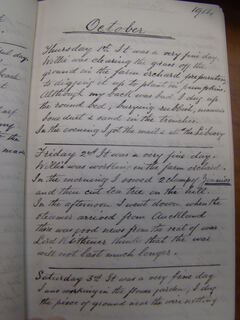 1914.
October.
Thursday 1st It was a very fine day.
Willie was clearing the grass off the
ground in the farm orchard preparatory
to digging it up to plant in pumpkins.
Although my back was bad I dug up
the round bed, burying rubbish, manure
Sawdust & sand in the trenches.
In the evening I got the mail & at the Library
Friday 2nd It was a very fine day.
Willie was working in the farm orchard.
In the morning I sowed 2 clumps
and then cut tea tree on the hill.
In the afternoon I went down when the
steamer arrived from Auckland
there was good news from the seat of war
Lord Kitchener thinks that the war
will not last much longer.
Saturday 3rd It was a very fine day
I was working in the flower garden, I dug
the piece of ground near the wire netting